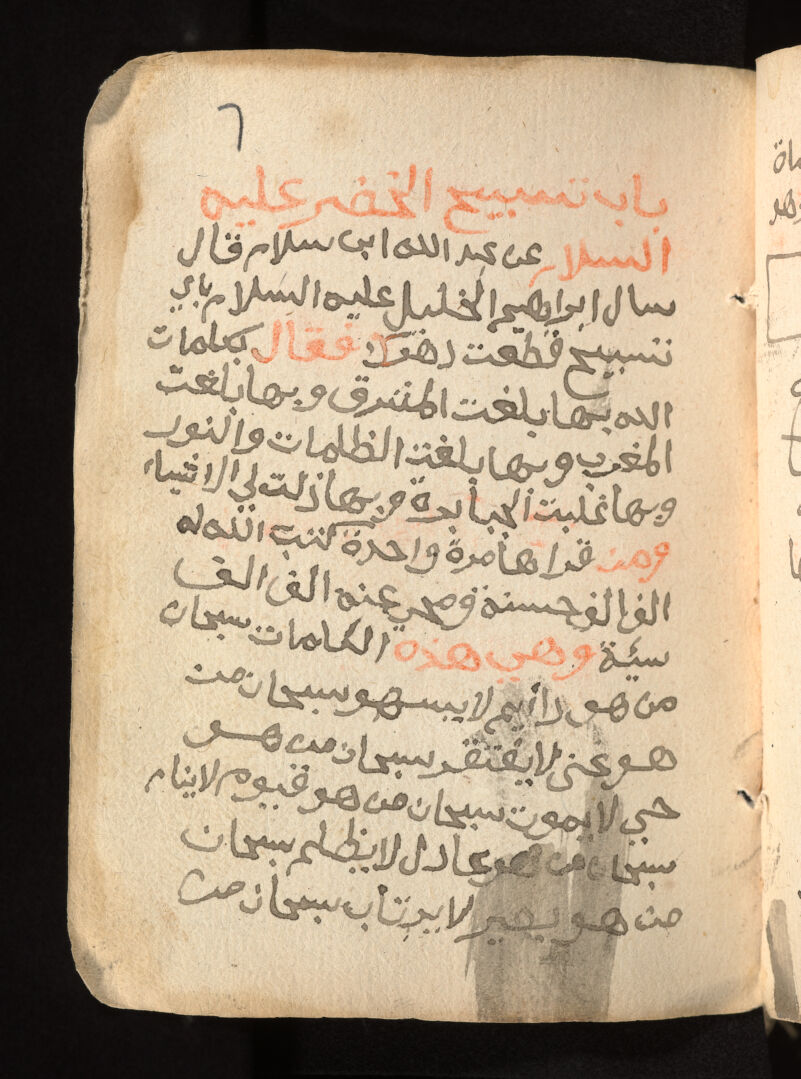 ٦
باب تسبيح الخضر عليه
السلام عن عبد الله ابن سلام قال
سال ابراهيم الخليل عليه السلام باي
تسبيح قطعت فقال بكلمات
الله بها بلغت المشرق وبها بلغت
المغرب وبها بلغت الظلمات والنور
وبها غلبت الجبابرة وبها ذلت لي الاشياء
ومن قراها مرة واحدة كتب الله له
الف الف حسنة ومحي عنه الف الف
سيئة وهي هذه الكلمات سبحان
من هو دائيم لا يسهو سبحان من
هو غني لا يفتقر سبحان من هو
حي لا يموت سبحان من هو قيوم لا ينام
سبحان من هو عادل لا يظلم سبحان
من هو بصير لا يرتاب سبحان من